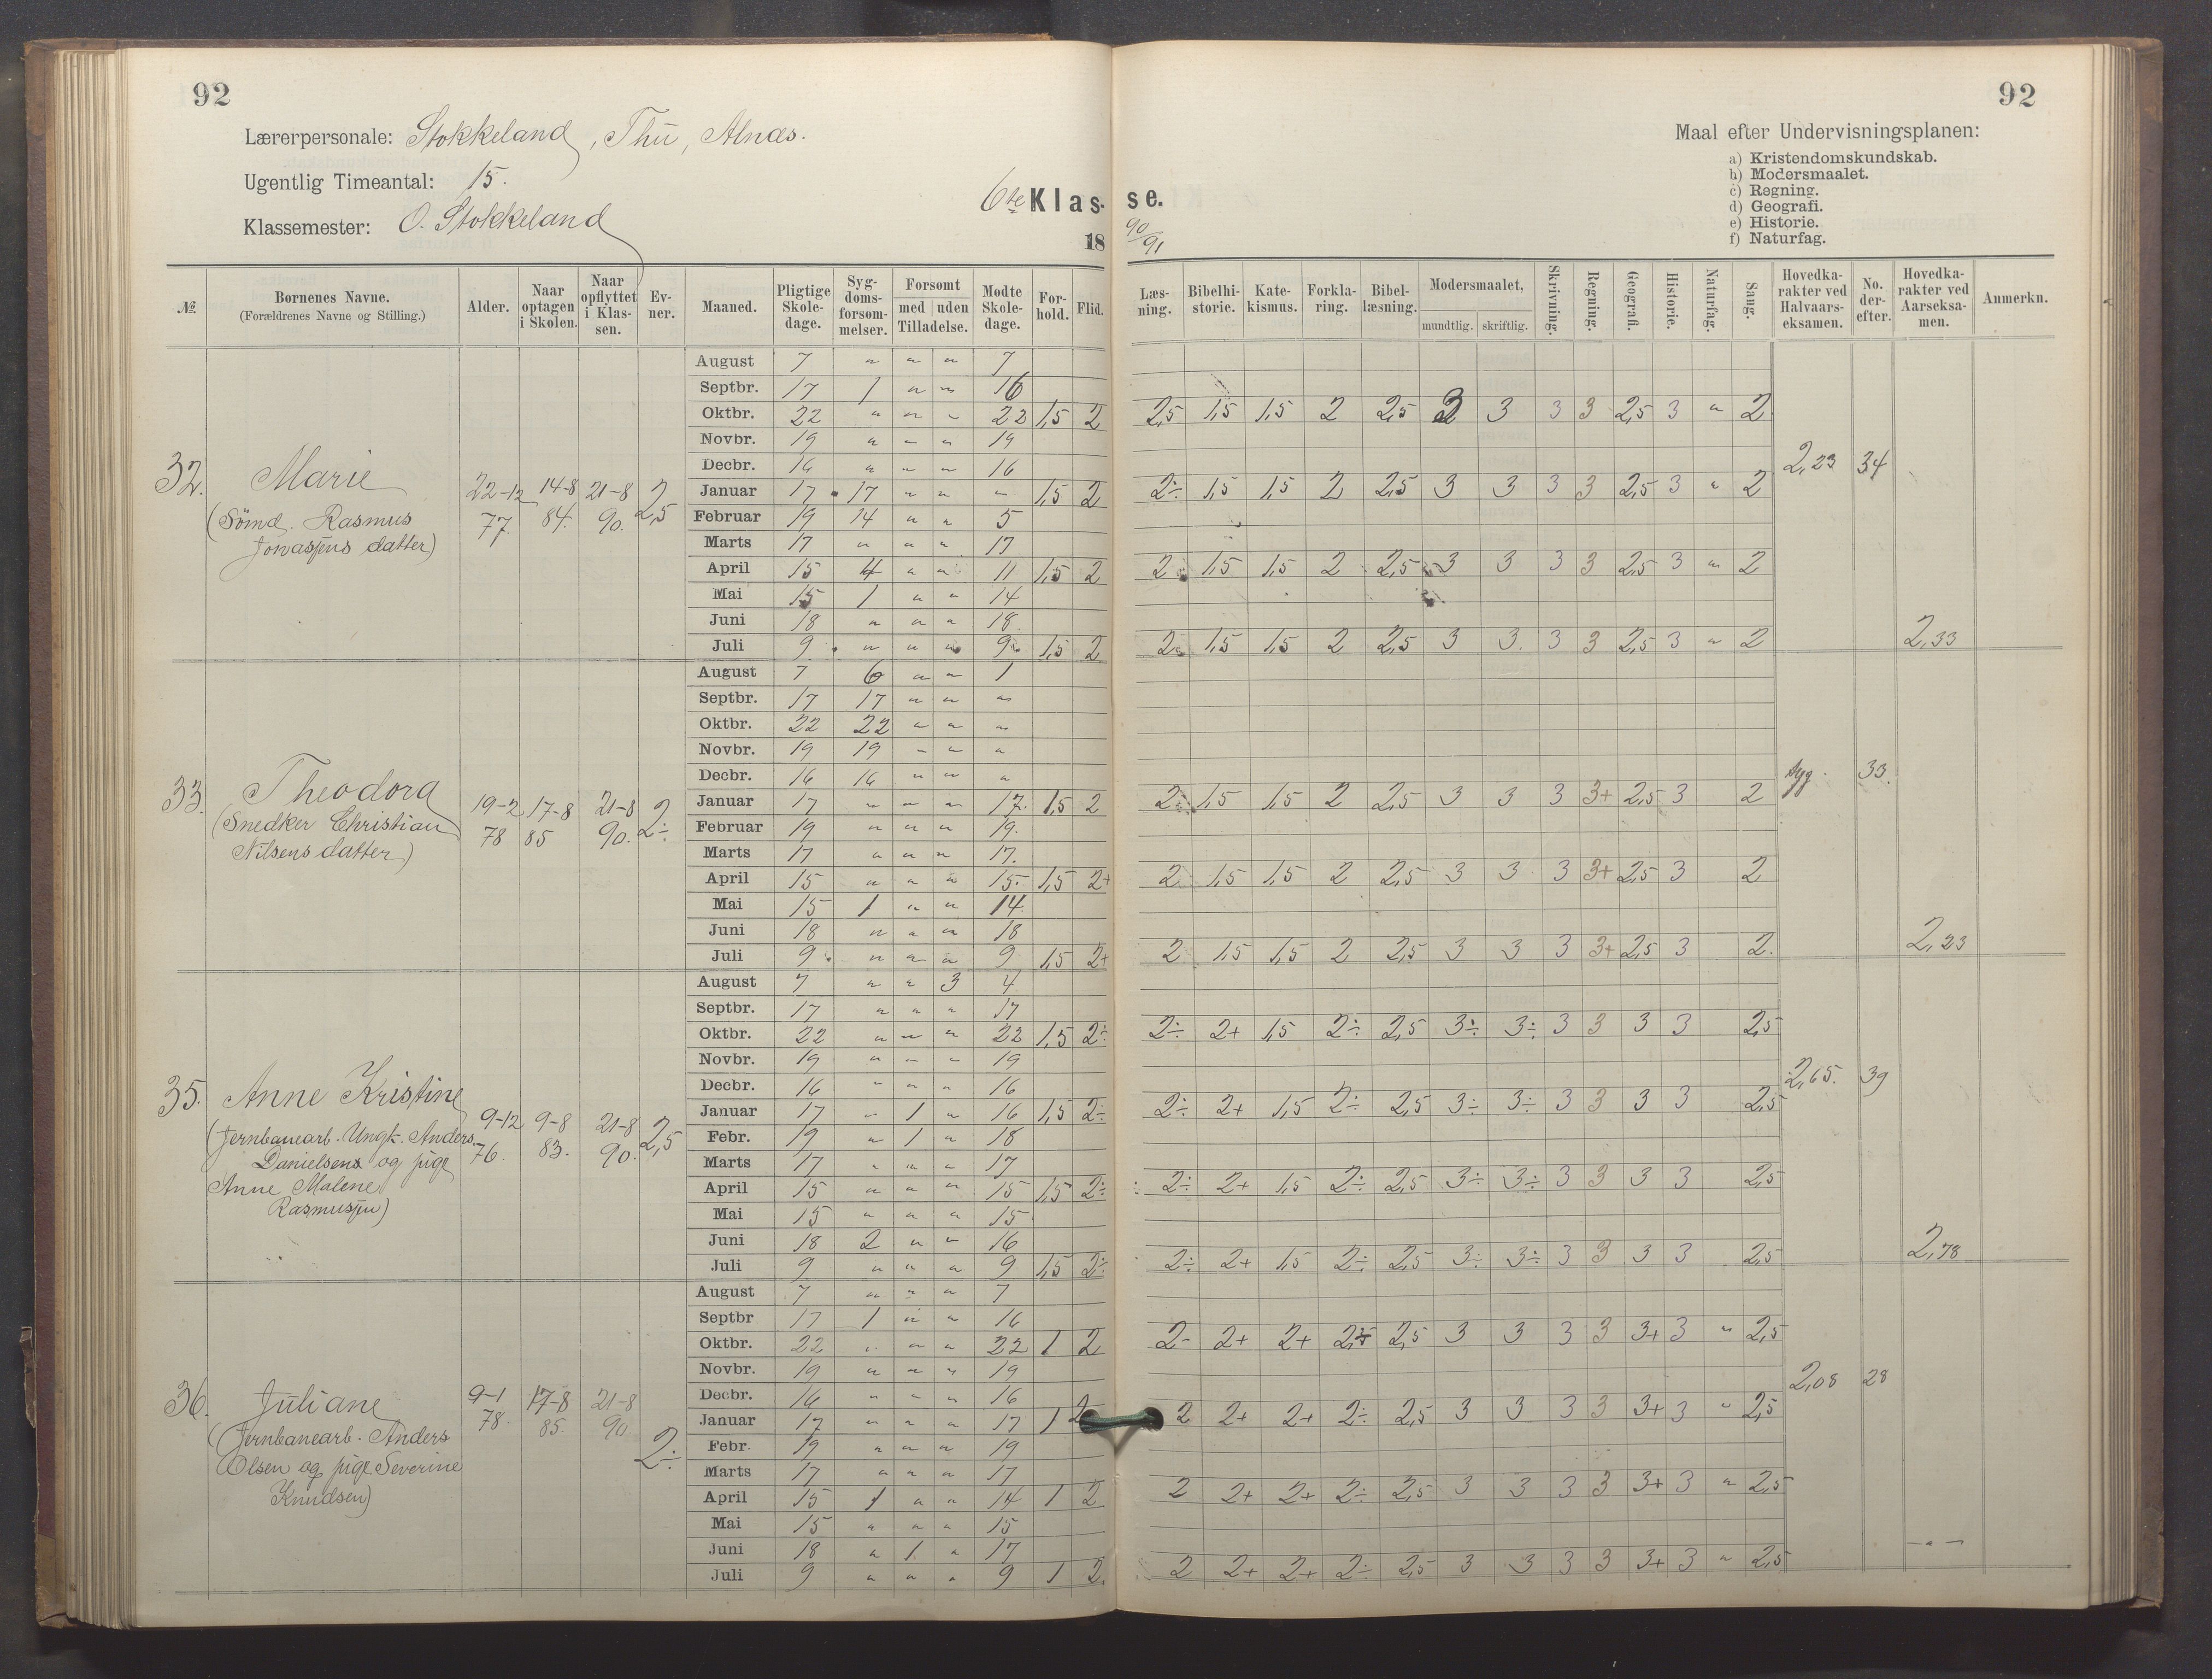 92
92
Lærerpersonale: Stokkeland, Thu, Alnæs.
Ugentlig Timeantal: 15.
Klassemester: O. Stokkeland
6te Klasse.
18 90/91
Maal efter Undervisningsplanen:
a) Kristendomskundskab.
b) Modersmaalet.
c) Regning.
d) Geografi.
e) Historie.
f) Naturfag.
№ | Børnenes Navne. (Forældrenes Navne og Stilling.) | Alder. | Naar optagen i Skolen. | Naar opflyttet i Klassen. | Evner. | Maaned. | Pligtige Skoledage. | Sygdomsforsømmelser. | Forsømt med | uden Tilladelse. | Mødte Skoledage. | Forhold. | Flid. | Læsning. | Bibelhistorie. | Katekismus. | Forklaring. | Bibellæsning. | Modersmaalet, mundtlig. | skriftlig. | Skrivning. | Regning. | Geografi. | Historie. | Naturfag. | Sang. | Hovedkarakter ved Halvaarseksamen. | No. derefter. | Hovedkarakter ved Aarseksamen. | Anmerkn.
32. Marie (Sömd. Rasmus Jonassens datter) 22-12 77. 14-8 84. 21-8 90. 2,5
August 7 " " " 7
Septbr. 17 1 " " 16
Oktbr. 22 " " " 22 1,5 2 2,5 1,5 1,5 2 2,5 3 3 3 3 2,5 3 " 2
Novbr. 19 " " " 19
Decbr. 16 " " " 16 2,23 34
Januar 17 17 " " " 1,5 2 2÷ 1,5 1,5 2 2,5 3 3 3 3 2,5 3 " 2
Februar 19 14 " " 5
Marts 17 " " " 17
April 15 4 " " 11 1,5 2 2 1,5 1,5 2 2,5 3 3 3 3 2,5 3 " 2
Mai 15 1 " " 14
Juni 18 " " " 18
Juli 9 " " " 9 1,5 2 2 1,5 1,5 2 2,5 3 3 3 3 2,5 3 " 2 2,33
33. Theodora (Snedker Christian Nilsens datter) 19-2 78 17-8 85 21-8 90. 2÷
August 7 6 " " 1
Septbr. 17 17 " " "
Oktbr. 22 22 " " "
Novbr. 19 19 " " "
Decbr. 16 16 " " " syg. 33.
Januar 17 " " " 17. 1,5 2 2 1,5 1,5 2 2,5 3 3 3 3+ 2,5 3 2
Februar 19 " " " 19.
Marts 17 " " " 17.
April 15 " " " 15. 1,5 2+ 2 1,5 1,5 2 2,5 3 3 3 3+ 2,5 3 2
Mai 15 1 " " 14.
Juni 18 " " " 18
Juli 9 " " " 9 1,5 2+ 2 1,5 1,5 2 2,5 3 3 3 3+ 2,5 3 2. 2,23
35. Anne Kristine (Jernbanearb. Ungk. Anders Danielsens og pige Anne Malene Rasmussen) 9-12 76. 9-8 83. 21-8 90. 2,5
August 7 " " 3 4
Septbr. 17 " " " 17
Oktbr. 22 " " " 22 1,5 2÷ 2÷ 2+ 1,5 2÷ 2,5 3÷ 3÷ 3 3 3 3 2,5
Novbr. 19 " " " 19
Decbr. 16 " " " 16 2,65. 39
Januar 17 " 1 " 16 1,5 2÷ 2÷ 2+ 1,5 2÷ 2,5 3÷ 3÷ 3 3 3 3 2,5
Febr. 19 " 1 " 18
Marts 17 " " " 17
April 15 " " " 15 1,5 2÷ 2÷ 2+ 1,5 2÷ 2,5 3÷ 3÷ 3 3 3 3 2,5
Mai 15 " " " 15
Juni 18 2 " " 16
Juli 9 " " " 9 1,5 2÷ 2÷ 2+ 1,5 2÷ 2,5 3÷ 3÷ 3 3 3 3 2,5 2,78
36. Juliane (Jernbanearb. Anders Olsen og pige Severine Knudsen) 9-1 78. 17-8 85. 21-8 90 2÷
August 7 " " " 7
Septbr 17 1 " " 16
Oktbr. 22 " " " 22 1 2 2- 2+ 2+ 2÷ 2,5 3 3 3 3 3+ 3 " 2,5
Novbr. 19 " " " 19
Decbr. 16 " " " 16 2,08 28
Januar 17 " " " 17 1 2 2 2+ 2+ 2÷ 2,5 3 3 3 3 3+ 3 " 2,5
Febr. 19 " " " 19
Marts 17 " " " 17
April 15 1 " " 14 1 2 2 2+ 2+ 2÷ 2,5 3 3 3 3 3+ 3 " 2,5
Mai 15 " " " 15
Juni 18 " 1 " 17
Juli 9 " " " 9 1 2. 2 2+ 2+ 2÷ 2,5 3 3 3 3 3+ 3 " 2,5 - " -